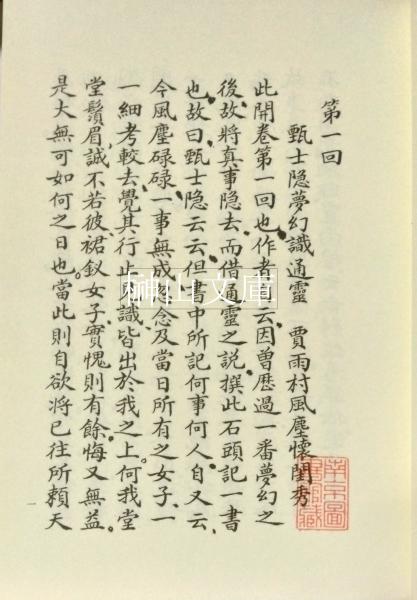 第一回
甄士隐夢幻識通靈　賈雨村風塵懷閨秀
此開卷第一回也、作者自云、因曾歷過一番夢幻之
後、故將真事隐去、而借通靈之說撰此石頭記一書
也、故曰甄士隐云云、但書中所記何事何人、自又云、
今風塵碌碌、一事無成、忽念及當日所有之女子、一
一細考較去、覺其行止見識皆出於我之上。何我堂
堂鬚眉、誠不若彼裙釵女子、實愧則有餘、悔又無益。
是大無可如何之日也。當此則自欲將已往所賴天
榊山文庫
南京圖
書館藏